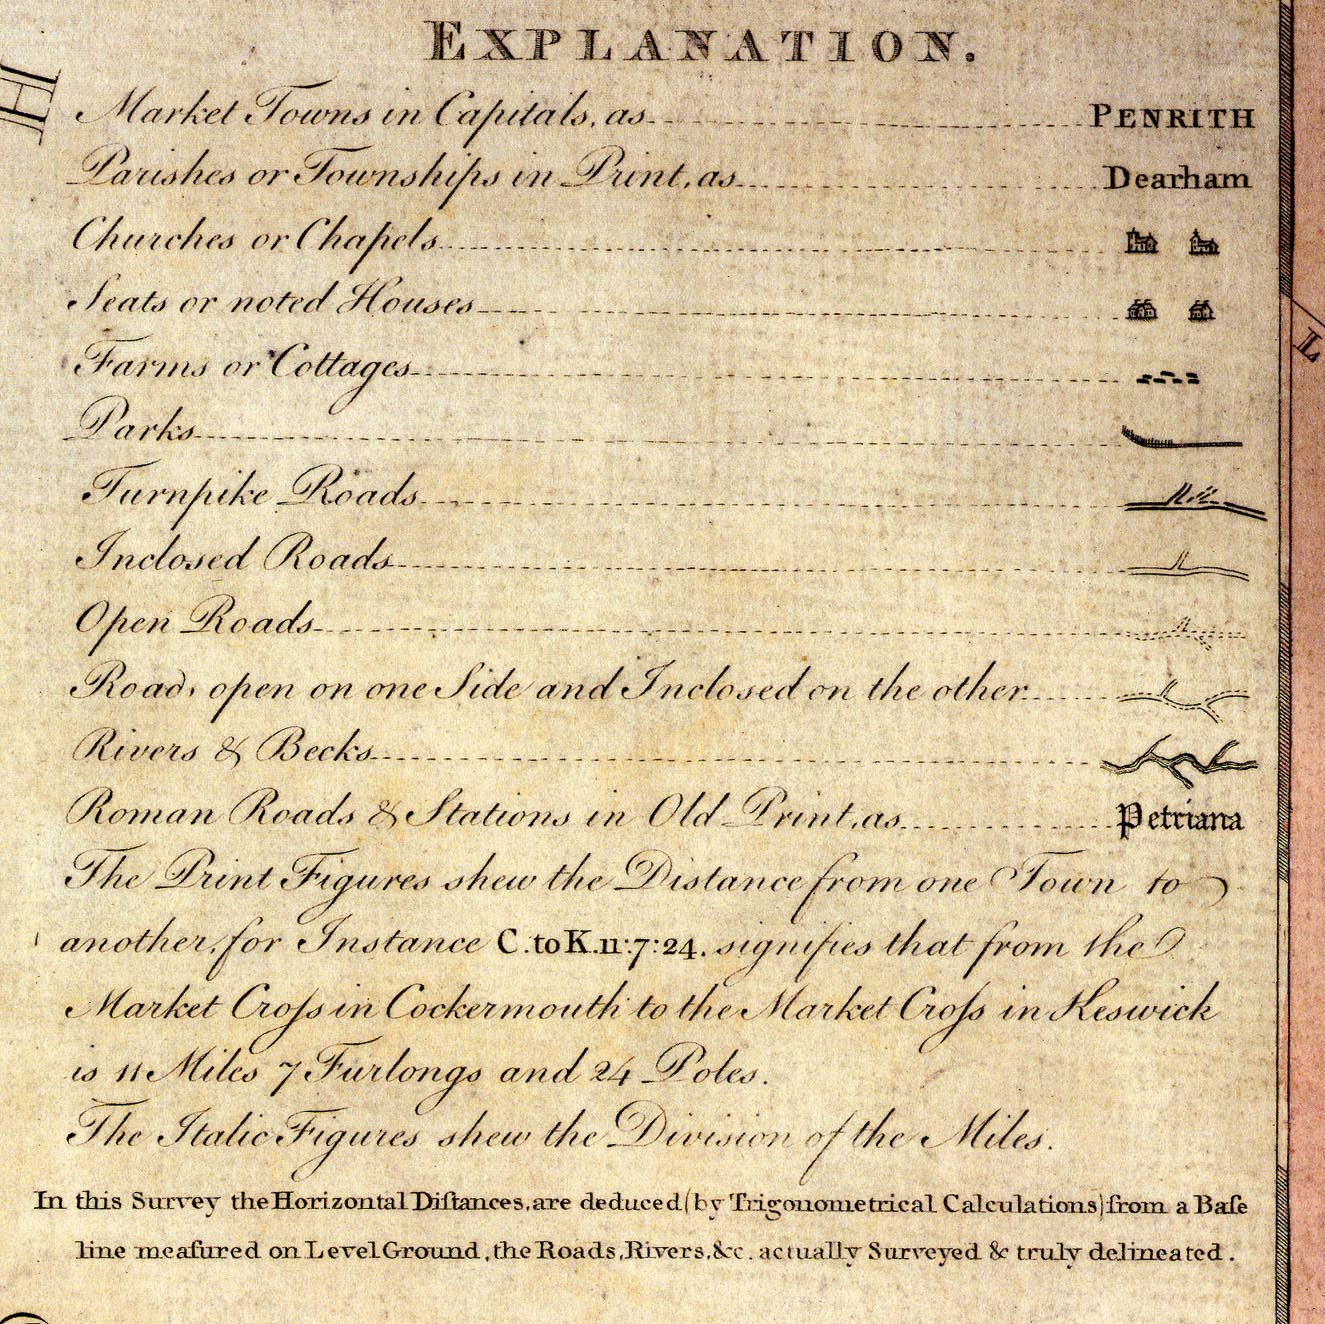 EXPLANATION.
H
Market Towns in Capitals, as PENRITH
Parishes or Townships in Print, as Dearham
Churches or Chapels
Seats or noted Houses
L
Farms or Cottages
Parks
Turnpike Roads
Inclosed Roads
Open Roads
Roads open on one Side and Inclosed on the other
Rivers & Becks
Roman Roads & Stations in Old Print, as Petriana
The Print Figures shew the Distance from one Town to
another, for Instance C. to K. 11:7:24. signifies that from the
Market Croſs in Cockermouth to the Market Croſs in Keswick
is 11 Miles 7 Furlongs and 24 Poles.
The Italic Figures shew the Division of the Miles.
In this Survey the Horizontal Diſtances, are deduced (by Trigonometrical Calculations) from a Baſe
line meaſured on Level Ground, the Roads, Rivers, &c. actually Surveyed & truly delineated.